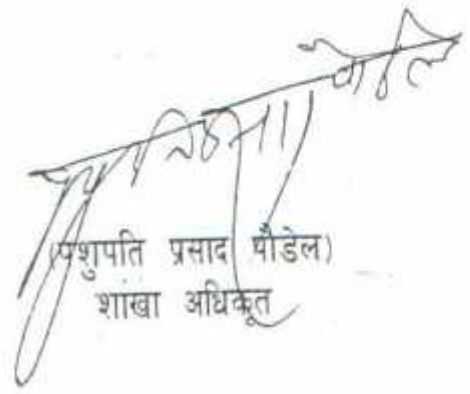 (पशुपति प्रसाद पौडेल)
शाखा अधिकृत